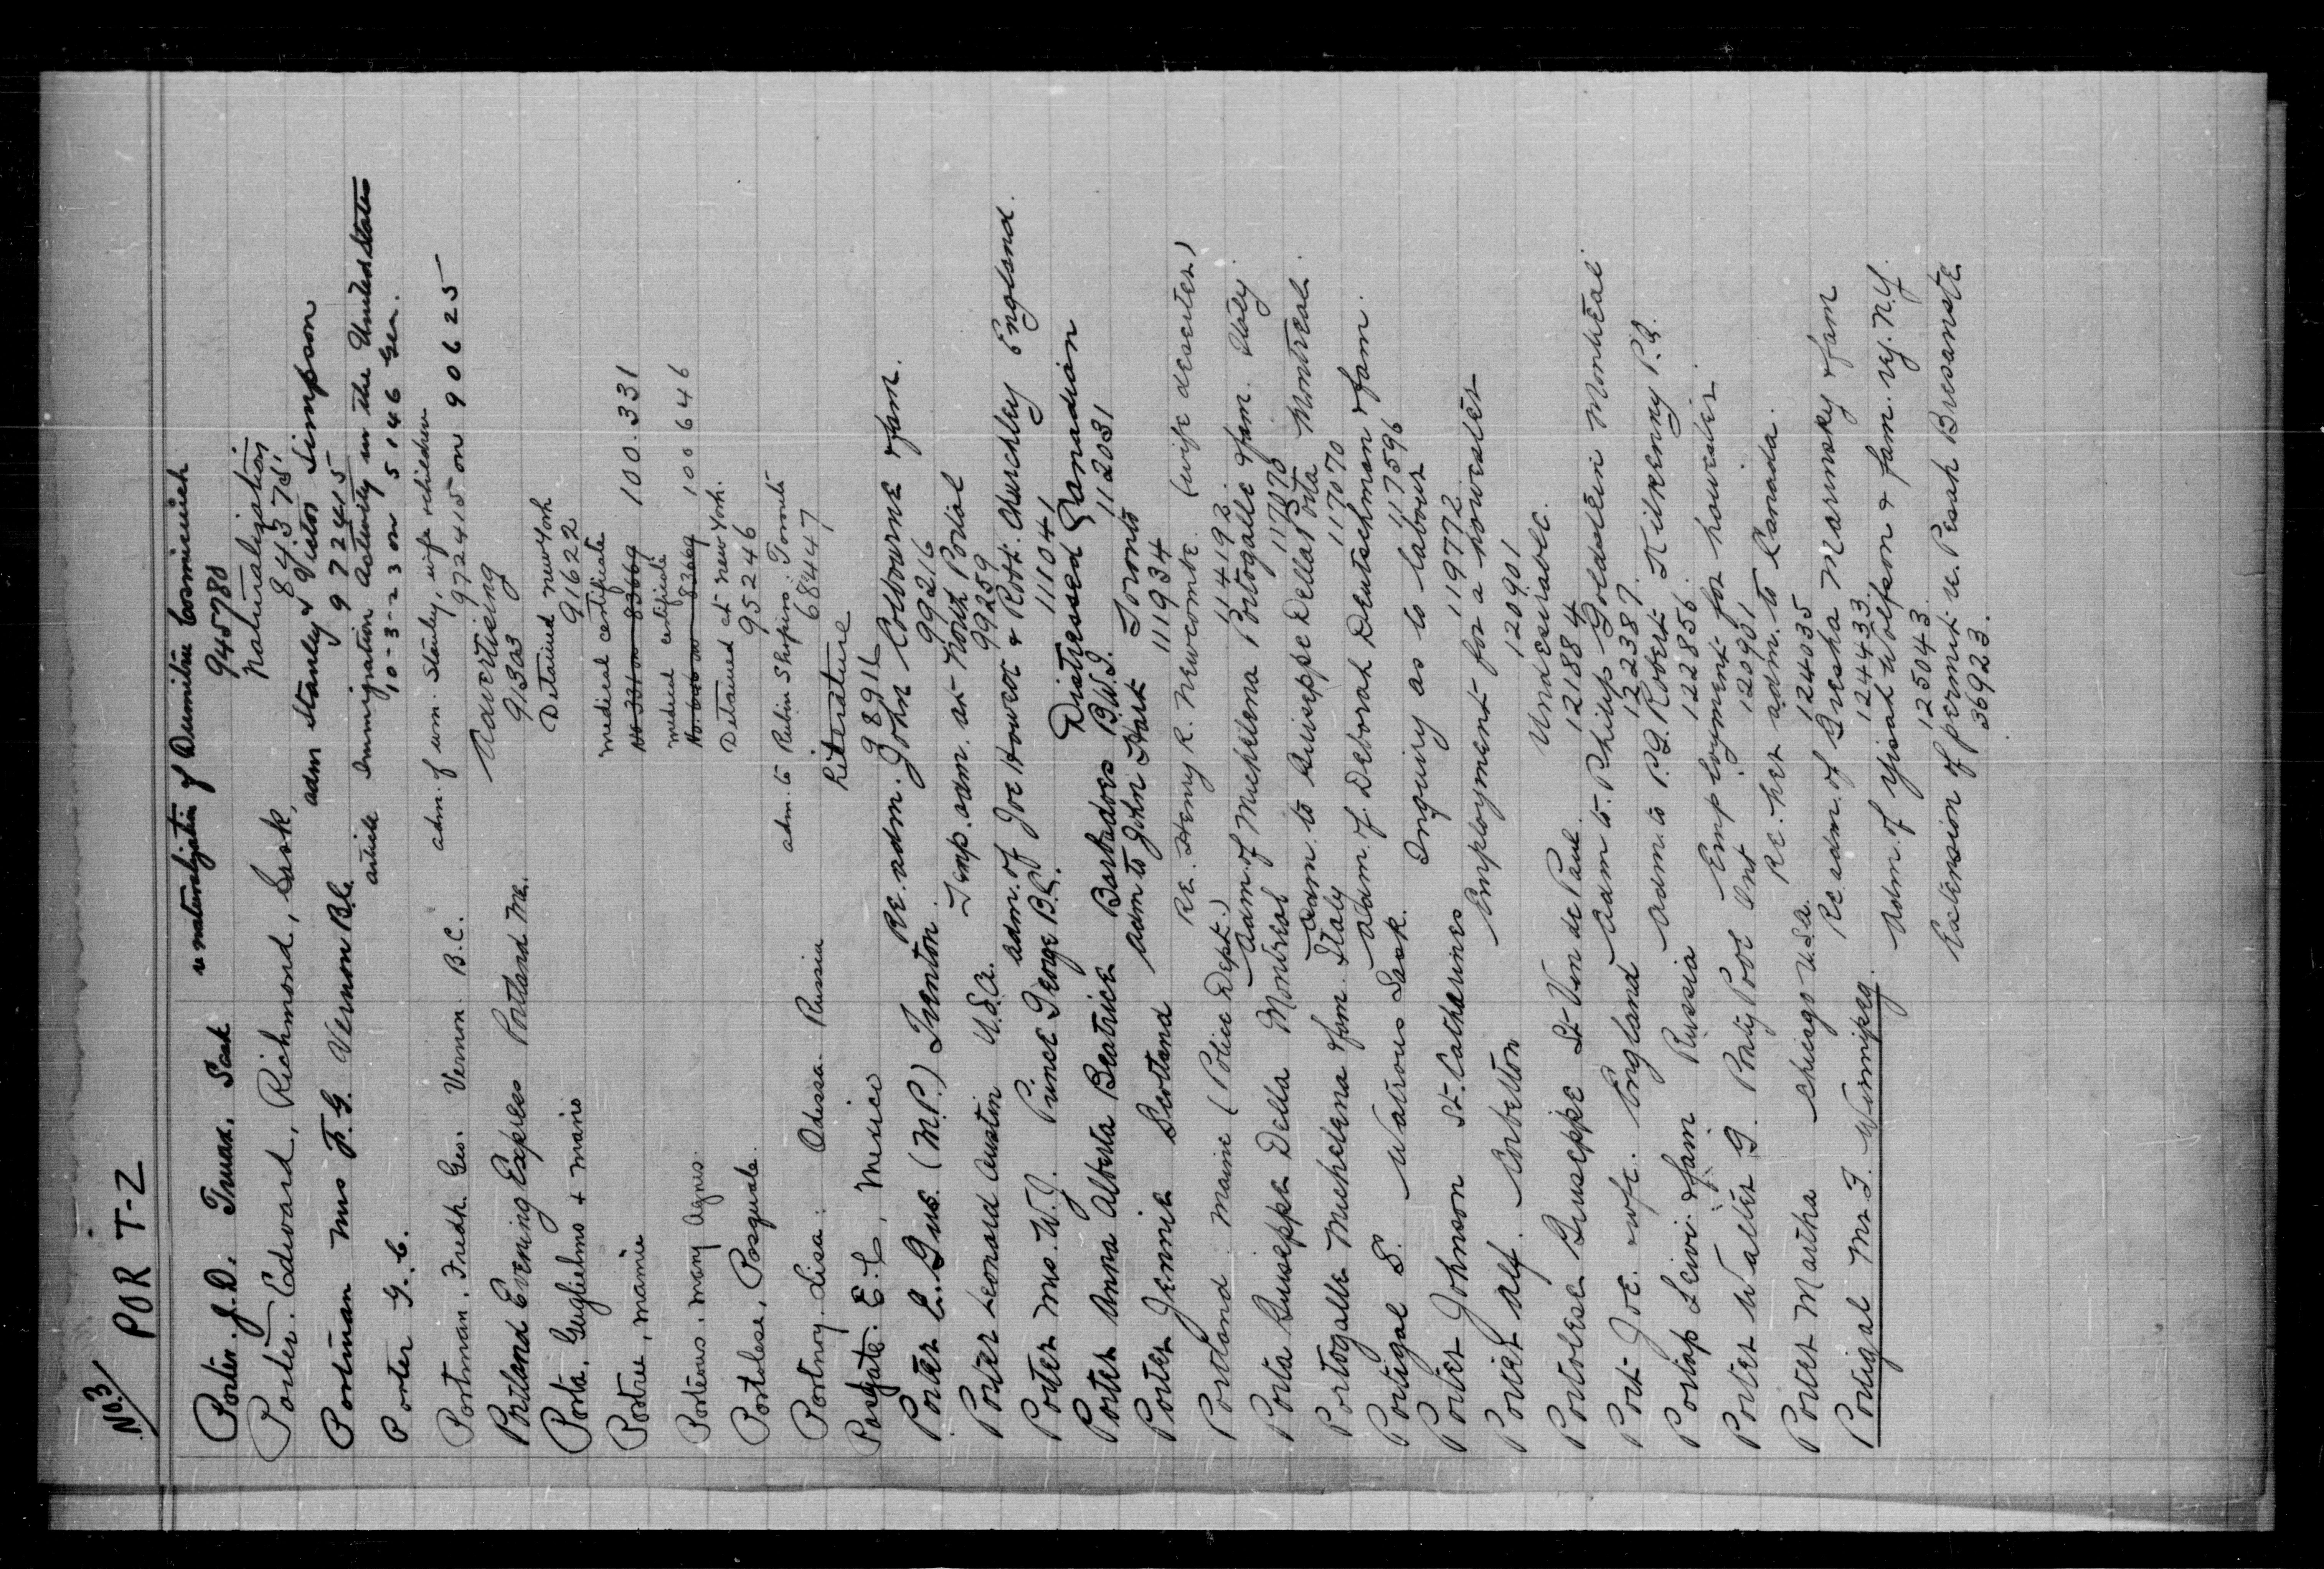 No. 3
POR T-Z
Portin. J. D. Truax, Sask re naturalization of Dumitru Cosminiuch
945780
Porter. Edward, Richmond, Sask, Naturalization
84375
Portman Mrs F. G. Vernon B.C. adm Stanley & Victor Simpson
972415
Porter G. C. article Immigration activity in the United States
10-3-23 on 5146 Gen.
Portman, Fredk. Geo. Vernon. B.C. adm. of wm. Stanley, wife & children
972415 on 90625
Portland Evening Express Portland Me. Advertising
91303
Porta, Guglielmo & Mario Detained New York
91622
Portrie, Mamie Medical certificate
No 331 on 83669 100.331
Porteous. Mary Agnes. Medical certificate
No. 646 on 83669 100646
Portolese, Pasquale. Detained at New York.
95246
Portnoy. Lisa. Odessa. Russia adm. to Rubin Shapiro. Toronto
68447
Posgate. E. C, Mexico Literature
98916
Porter E. Gus. (M.P.) Trenton Re. adm. John Colbourne & fam.
99216
Porter Leonard Austin U.S.A. Temp. adm. at North Portal
99259
Porter Mrs. W. J. Prince George B.C. adm. of Joe Howear & Robt. Churchley England.
111041
Porter Anna Alberta Beatrice Barbadoes B.W.I. Distressed Canadian
112031
Porter Jennie Scotland adm to John Hart Toronto
111934
Portland Maine (Police Dept.) Re. Henry R. Newcombe. (wife deserter)
114192.
Porta Guiseppe Della Montreal adm. of Michelena Portogalle & fam. Italy
117070
Portogalle Michelena & fam. Italy adm. to Guiseppe Della Porta Montreal.
117070
Portigal S. Watrous Sask. adm. of. Deborah Deutschman & fam.
117596
Porter Johnson St. Catharines Inquiry as to labour
119772
Porter Alf. Corbetton Employment for a howester
120901
Portolese Giuseppe St. Vin de Paul Undesirable.
121884
Port Joe. wife. England adm to. Philip Goldstein Montreal
122387.
Portap Leivi & fam Russia adm. to P. G. Robert Kilkenny P.Q.
122856.
Porter Walter G. Ponty Pool Ont Employment for howester.
120901
Porter Martha Chicago U.S.A. Re. her adm. to Canada.
124035
Portigal Mr. F. Winnipeg. Re adm. of Griesha Marinsky & fam
124433
Adm. of Yisah Wolfson & fam. N.Y.
125043.
Extension of permit re. Pesah Bresanste
36923.